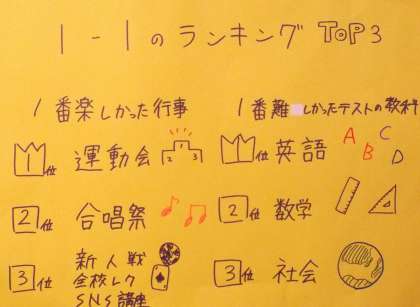 1-1のランキング TOP3
1番楽しかった行事
1位 運動会
1
2 3
2位 合唱祭
3位 新人戦
全校レク
SNS講座
1番難しかったテストの教科
1位 英語
A B C D
2位 数学
3位 社会